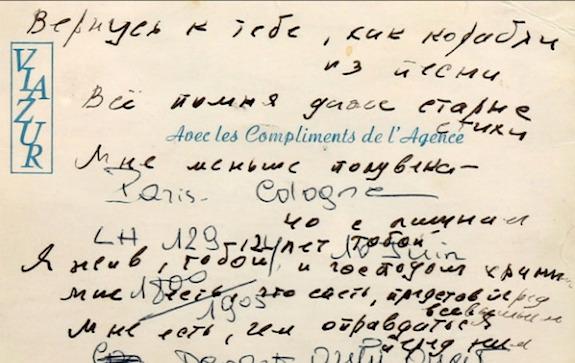 Вернусь к тебе, как корабли
из песни
VIAZUR
Всё помня даже старые
стихи
Avec les Compliments de l'Agence
Мне меньше полувека –
Paris. Cologne
40 с лишним
LH 129 12 лет тобой Juin
Я жив, тобой и господом храним
мне есть, что спеть, представ перед
1800
1905
всевышним
Мне есть, чем оправдаться
перед ним